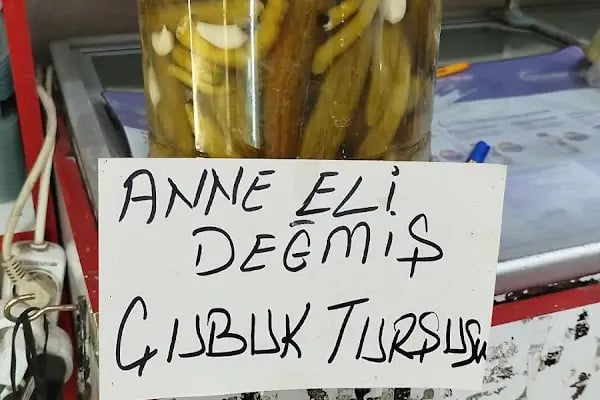 ANNE ELİ
DEĞMİŞ
ÇUBUK TURŞUSU